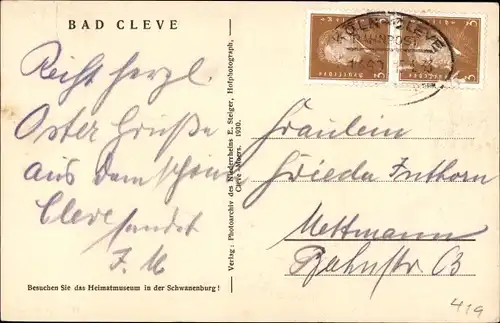 BAD CLEVE
KÖLN-CLEVE
BAHNPOST
Deutsches Reich
3
3
Recht herzl.
Oster Grüße
aus dem schön
Cleve
sendet
F. M
Verlag: Photoarchiv des Niederrheins E. Steiger, Hofphotograph,
Cleve 1930.
Fräulein
Frieda Inthorn
Mettmann
Bahnstr 13
Besuchen Sie das Heimatmuseum in der Schwanenburg!
419